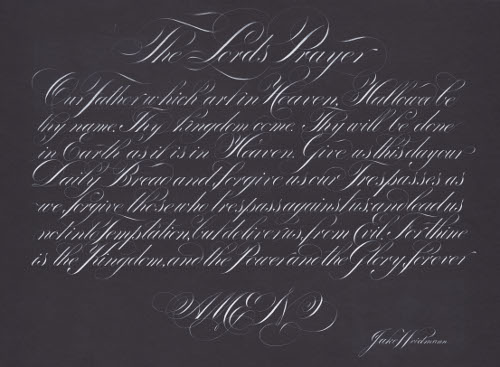 The Lords Prayer
Our father which art in Heaven, Hallowd be
thy name. Thy Kingdom come. Thy will be done
in Earth as it is in Heaven. Give us this day our
Daily Bread and forgive us our Trespasses as
we forgive those who trespass against us: and lead us
not into Temptation, but deliver us, from Evil. For thine
is the Kingdom, and the Power and the Glory, forever
AMEN
Jake Weidmann